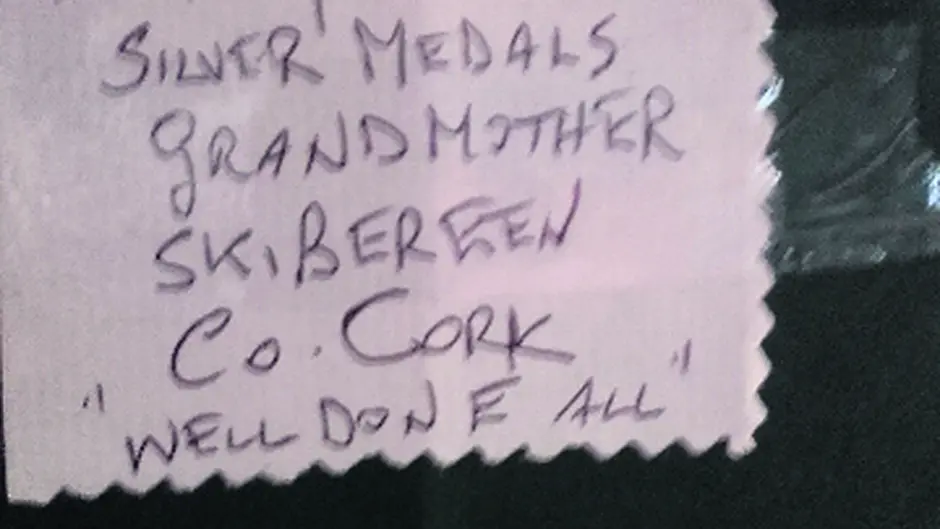 SILVER MEDALS
GRANDMOTHER
SKIBEREEN
Co. CORK
"WELL DONE ALL"